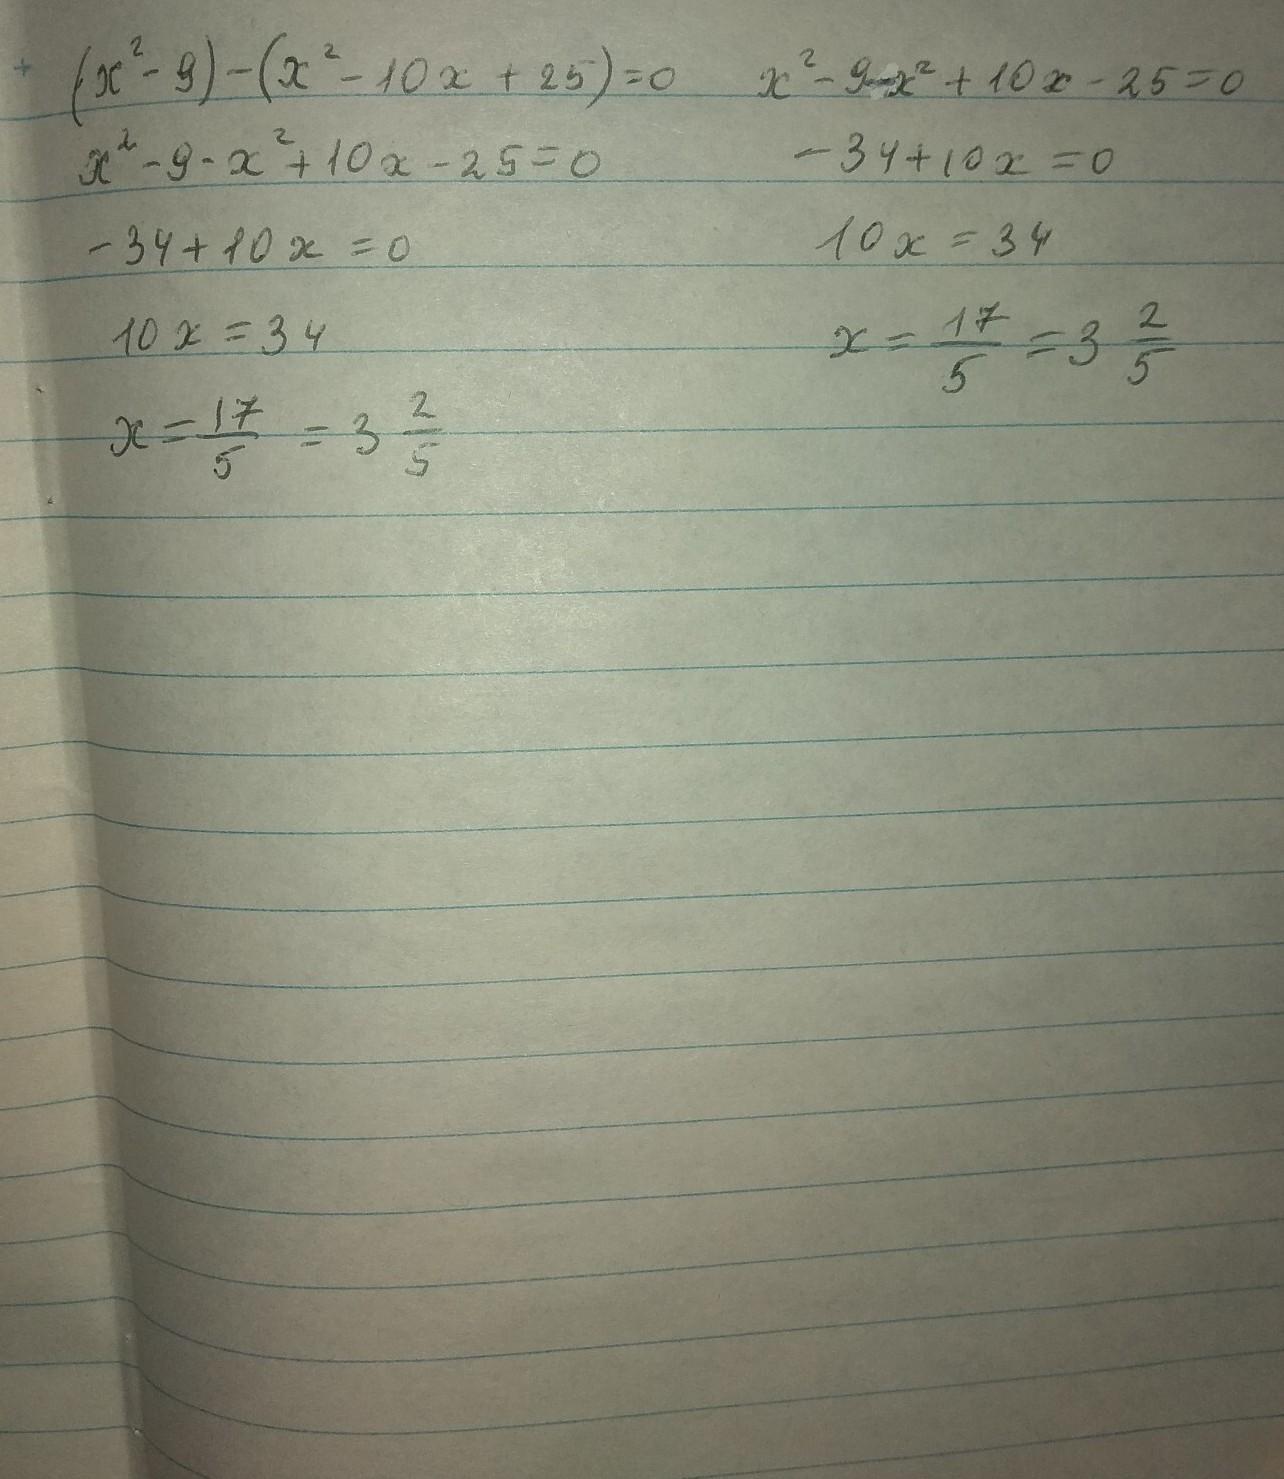 (x² - 9) - (x² - 10x + 25) = 0
x² - 9 - x² + 10x - 25 = 0
-34 + 10x = 0
10x = 34
x = 17/5 = 3 2/5
x² - 9 - x² + 10x - 25 = 0
-34 + 10x = 0
10x = 34
x = 17/5 = 3 2/5